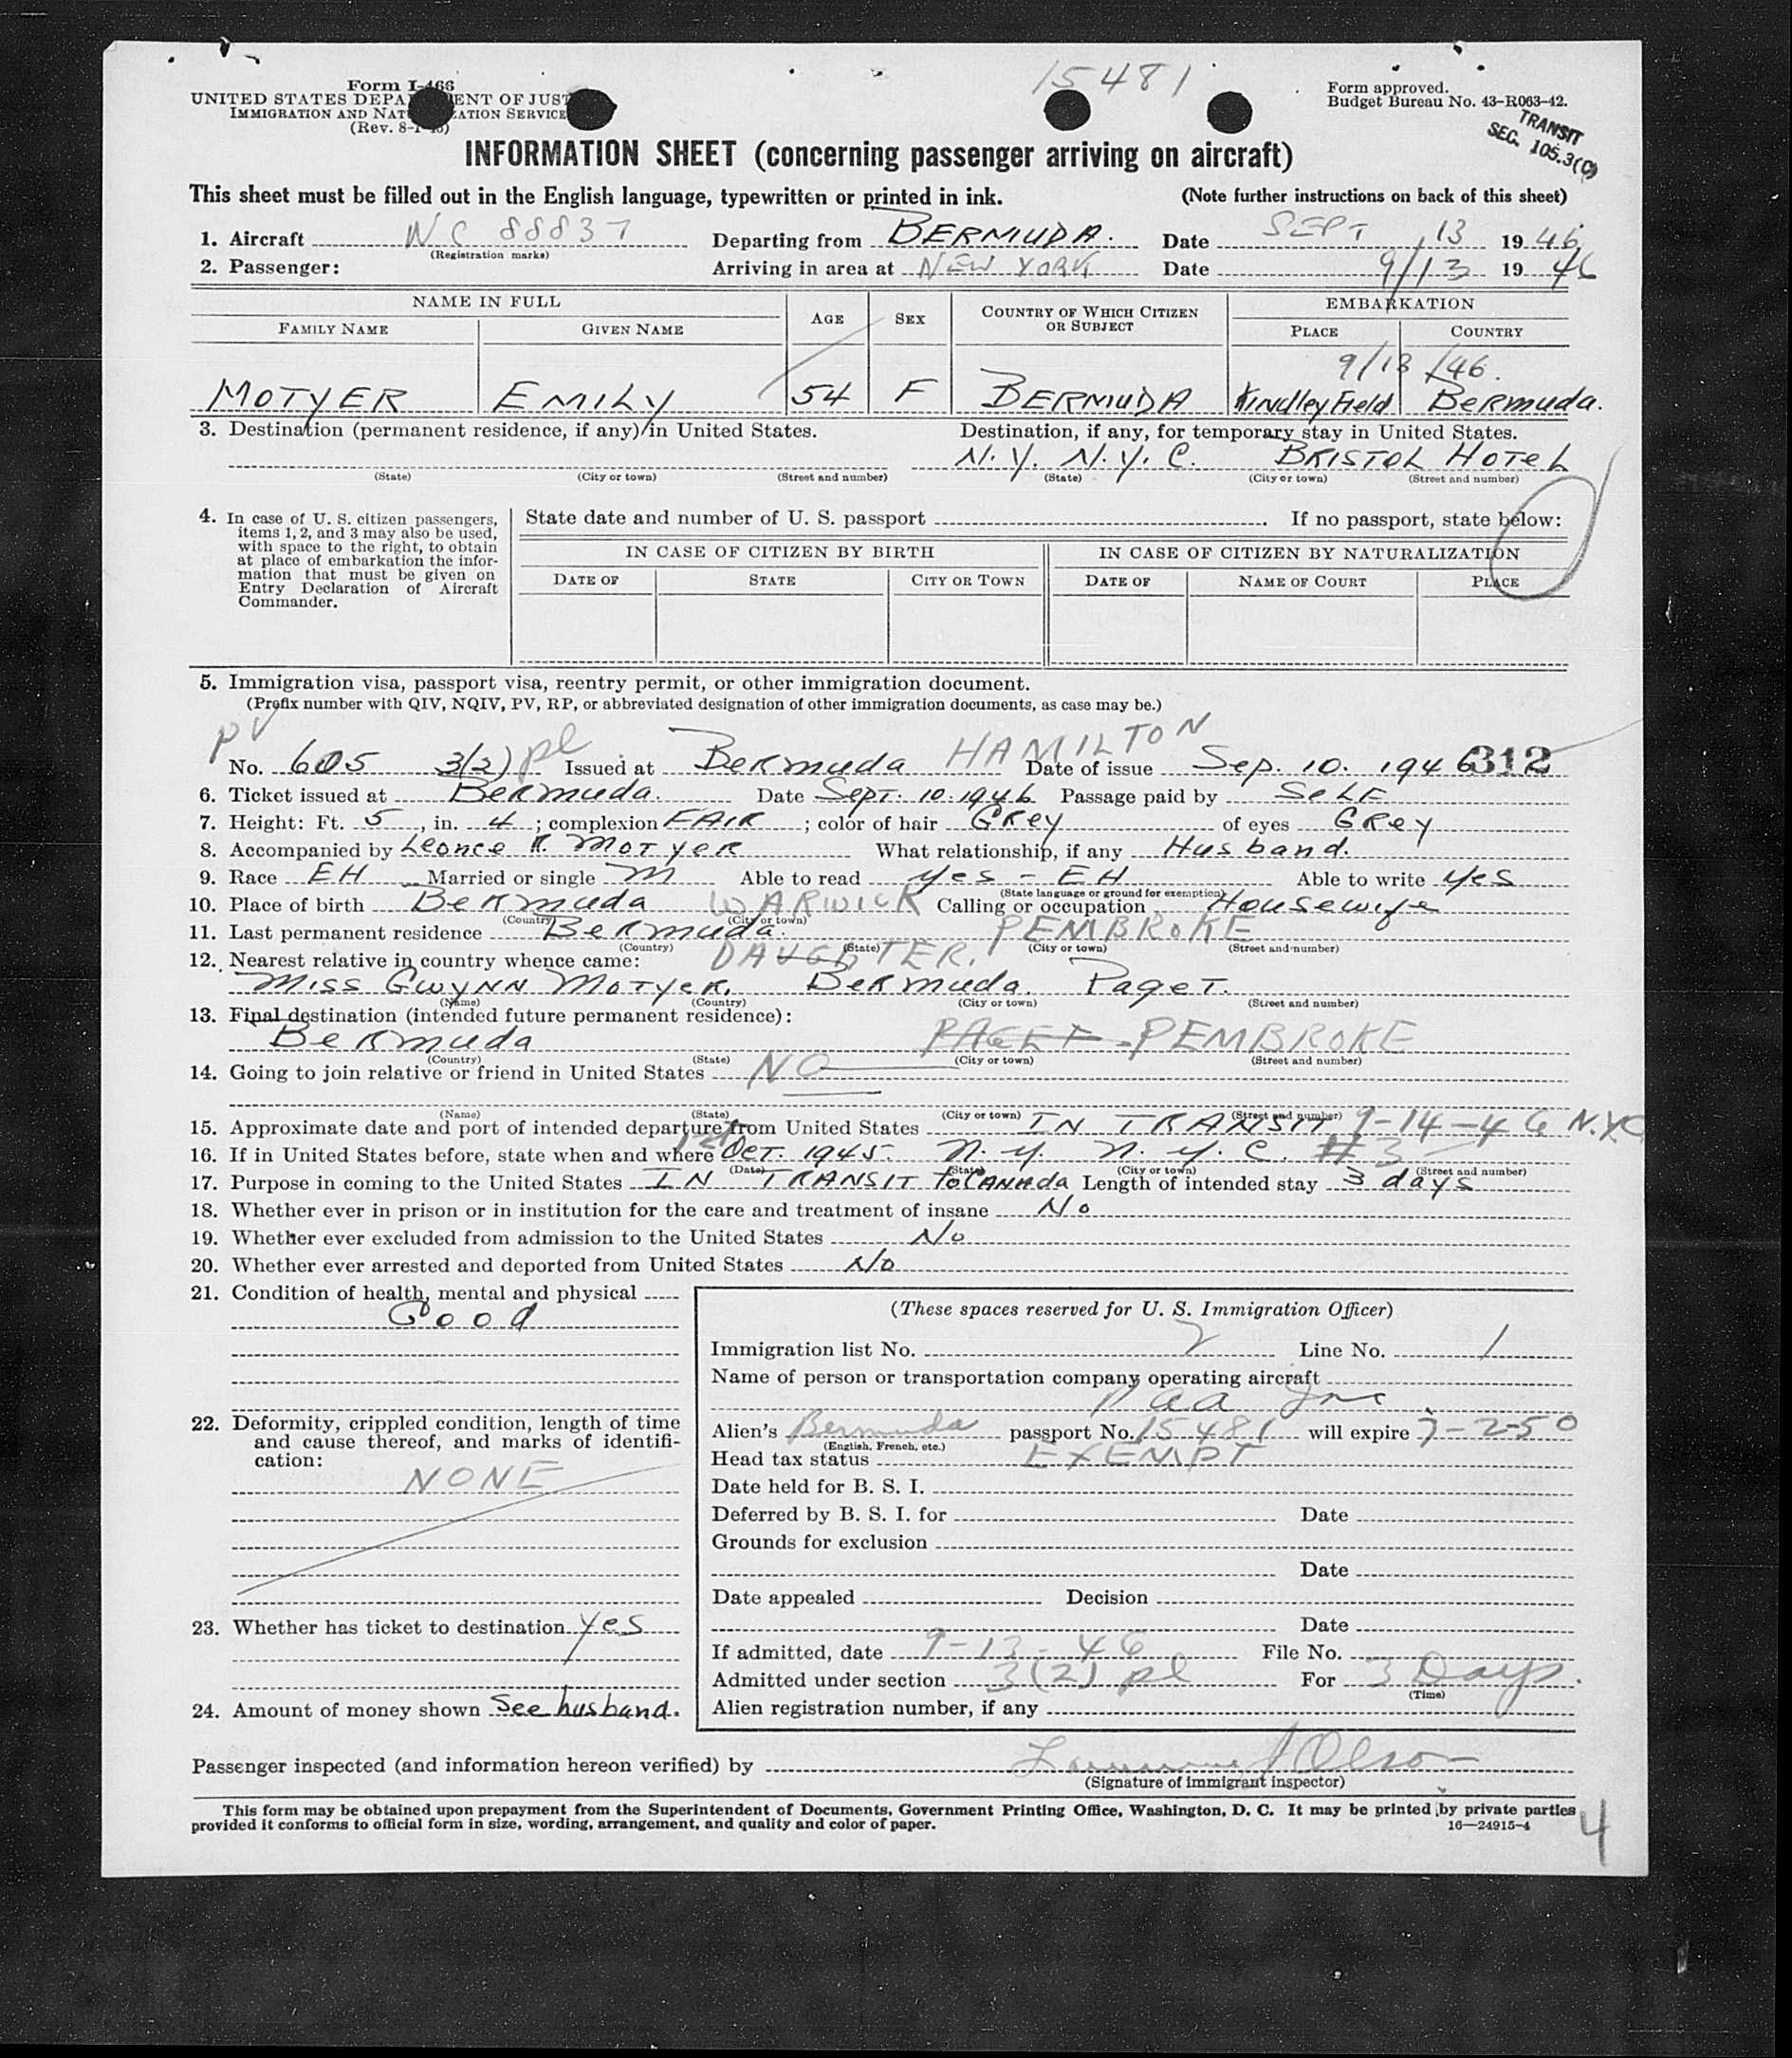 15481
Form I-466
UNITED STATES DEPARTMENT OF JUSTICE
IMMIGRATION AND NATURALIZATION SERVICE
(Rev. 8-1-45)
Form approved.
Budget Bureau No. 43-R063-42.
TRANSIT
SEC. 105.3(C)
INFORMATION SHEET (concerning passenger arriving on aircraft)
This sheet must be filled out in the English language, typewritten or printed in ink. (Note further instructions on back of this sheet)
1. Aircraft NC 88837 Departing from BERMUDA. Date SEPT 13 1946
(Registration marks)
2. Passenger: Arriving in area at NEW YORK Date 9/13 1946
NAME IN FULL AGE SEX COUNTRY OF WHICH CITIZEN OR SUBJECT EMBARKATION
FAMILY NAME GIVEN NAME PLACE COUNTRY
9/13/46.
MOTYER EMILY 54 F BERMUDA Kindley Field Bermuda.
3. Destination (permanent residence, if any) in United States. Destination, if any, for temporary stay in United States.
N.Y. N.Y.C. BRISTOL HOTEL
(State) (City or town) (Street and number) (State) (City or town) (Street and number)
4. In case of U. S. citizen passengers, items 1, 2, and 3 may also be used, with space to the right, to obtain at place of embarkation the information that must be given on Entry Declaration of Aircraft Commander.
State date and number of U. S. passport . If no passport, state below:
IN CASE OF CITIZEN BY BIRTH IN CASE OF CITIZEN BY NATURALIZATION
DATE OF STATE CITY OR TOWN DATE OF NAME OF COURT PLACE
5. Immigration visa, passport visa, reentry permit, or other immigration document.
(Prefix number with QIV, NQIV, PV, RP, or abbreviated designation of other immigration documents, as case may be.)
PV
No. 605 3(2) pl Issued at Bermuda HAMILTON Date of issue Sep. 10. 1946 312
6. Ticket issued at Bermuda. Date Sept. 10. 1946 Passage paid by Self
7. Height: Ft. 5, in. 4; complexion FAIR; color of hair Grey of eyes Grey
8. Accompanied by Leonce R. Motyer What relationship, if any Husband.
9. Race EH Married or single M Able to read yes - EH Able to write yes
(State language or ground for exemption)
10. Place of birth Bermuda WARWICK Calling or occupation Housewife
(Country) (City or town)
11. Last permanent residence Bermuda. PEMBROKE
(Country) (State) (City or town) (Street and number)
12. Nearest relative in country whence came: DAUGHTER.
Miss Gwynn Motyer. Bermuda. Paget.
(Name) (Country) (City or town) (Street and number)
13. Final destination (intended future permanent residence):
Bermuda PAGET PEMBROKE
(Country) (State) (City or town) (Street and number)
14. Going to join relative or friend in United States NO
(Name) (State) (City or town) (Street and number)
15. Approximate date and port of intended departure from United States IN TRANSIT 9-14-46 N.Y.C
16. If in United States before, state when and where Oct. 1945. N.Y. N.Y.C. #3
(Date) (State) (City or town) (Street and number)
17. Purpose in coming to the United States IN TRANSIT To CANADA Length of intended stay 3 days
18. Whether ever in prison or in institution for the care and treatment of insane No
19. Whether ever excluded from admission to the United States No
20. Whether ever arrested and deported from United States No
21. Condition of health, mental and physical
Good
22. Deformity, crippled condition, length of time and cause thereof, and marks of identification:
NONE
23. Whether has ticket to destination yes
24. Amount of money shown See husband.
(These spaces reserved for U. S. Immigration Officer)
Immigration list No. 2 Line No. 1
Name of person or transportation company operating aircraft
Paa Inc
Alien's Bermuda passport No. 15481 will expire 7-2-50
(English, French, etc.)
Head tax status EXEMPT
Date held for B. S. I.
Deferred by B. S. I. for Date
Grounds for exclusion
Date
Date appealed Decision
Date
If admitted, date 9-13-46 File No.
Admitted under section 3(2) pl For 3 Days.
(Time)
Alien registration number, if any
Passenger inspected (and information hereon verified) by
(Signature of immigrant inspector)
This form may be obtained upon prepayment from the Superintendent of Documents, Government Printing Office, Washington, D. C. It may be printed by private parties
provided it conforms to official form in size, wording, arrangement, and quality and color of paper. 16—24915-4
4